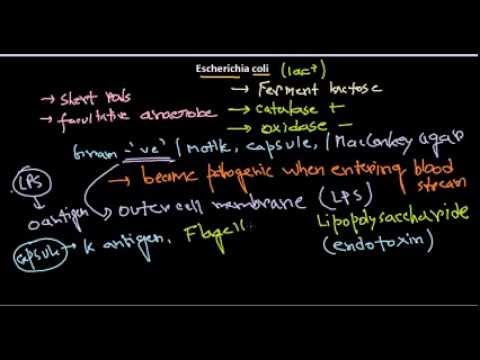 Escherichia coli (lac+)
→ Short rods
→ Ferment lactose
→ facultative anaerobe
→ catalase +
→ oxidase -
Gram -'ve' / Motile, capsule, / MacConkey agar
→ become pathogenic when entering blood stream
LPS
O antigen
outer cell membrane (LPS)
Lipopolysaccharide
(endotoxin)
capsule → K antigen, Flagell